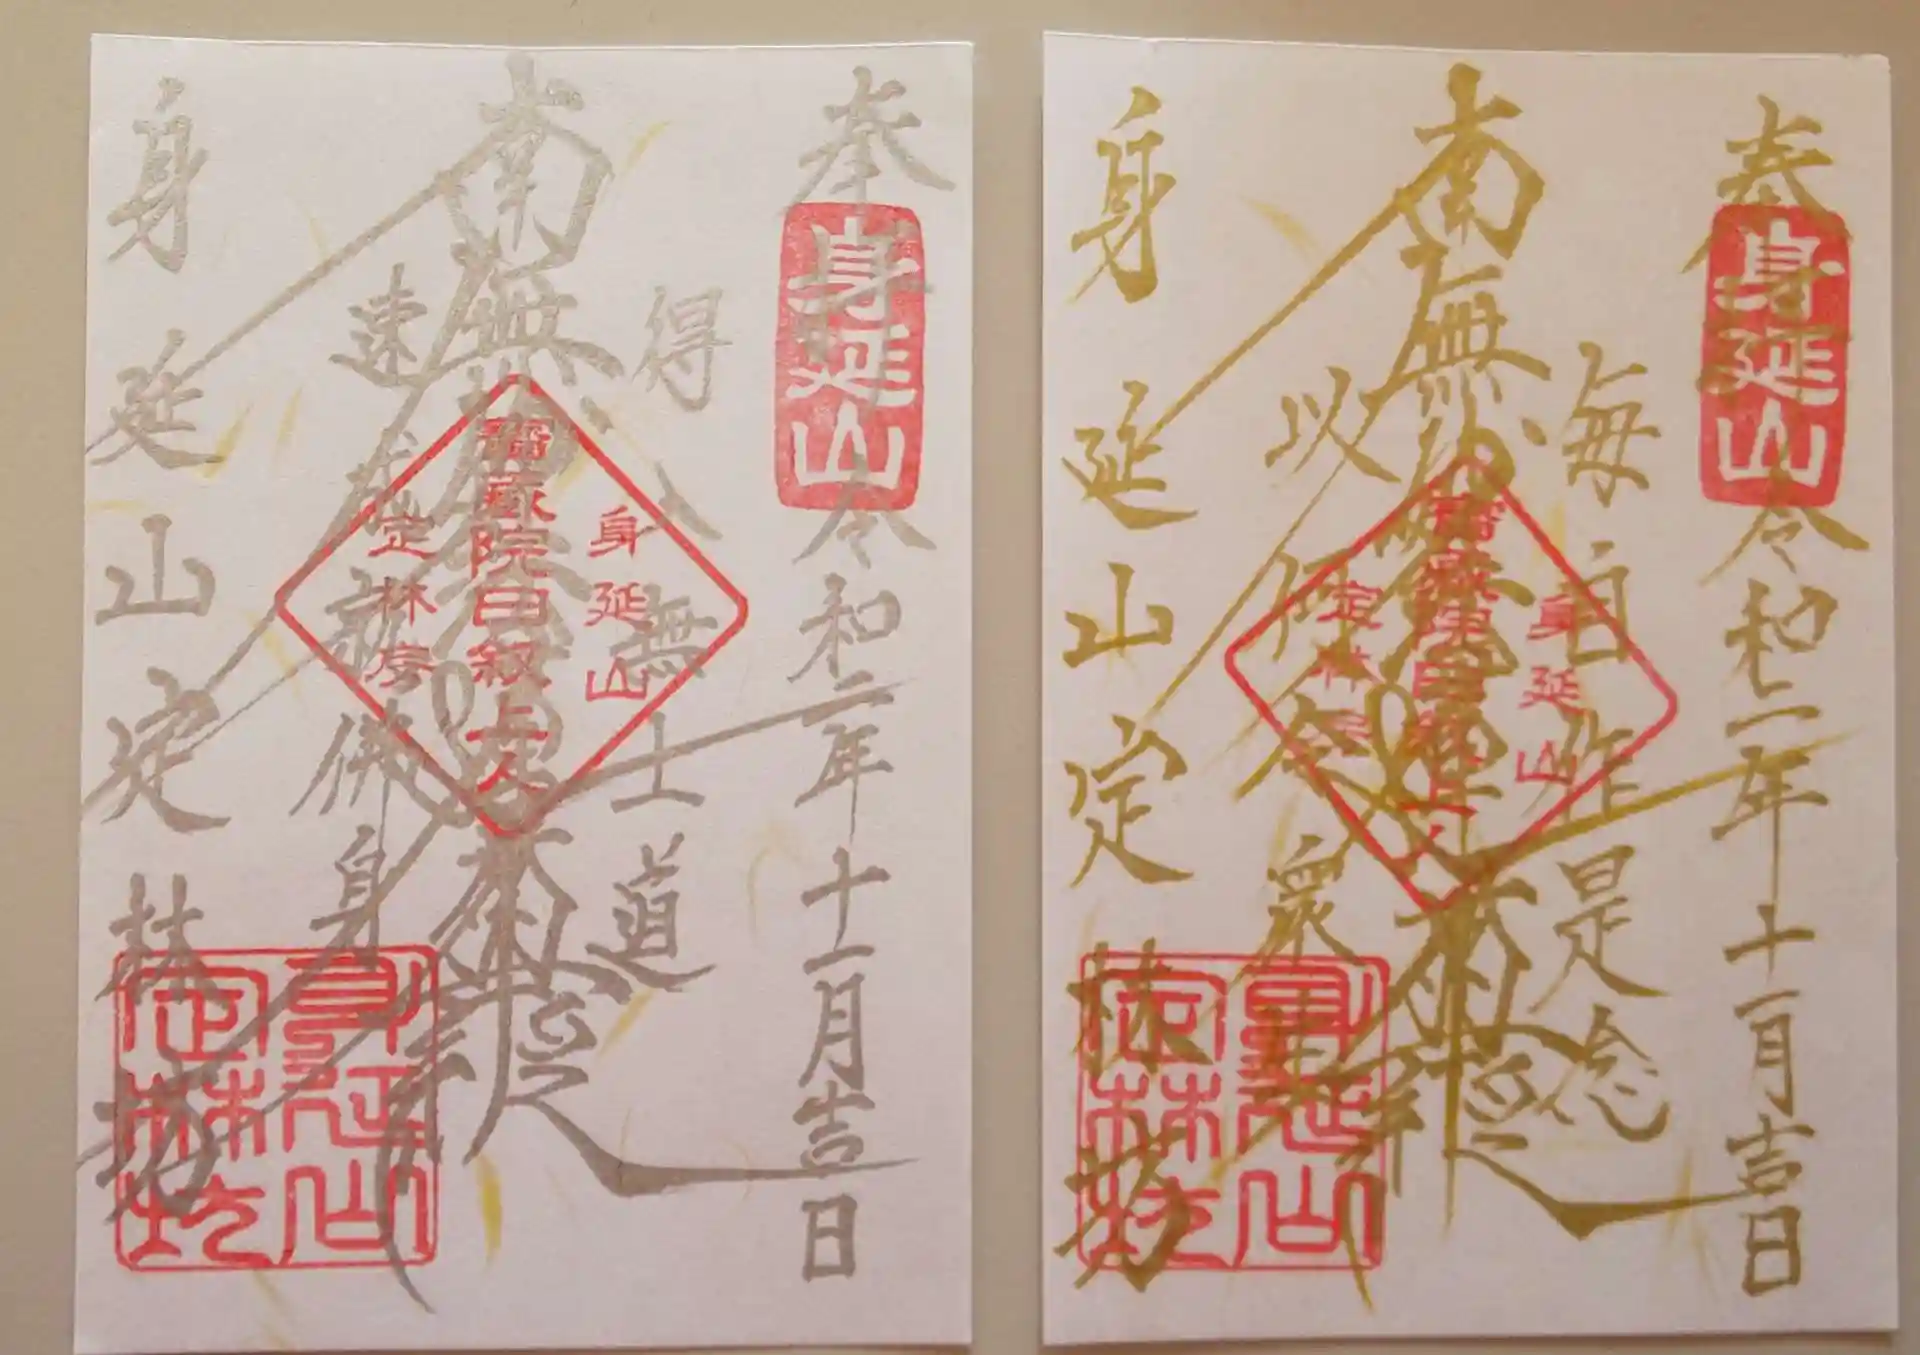 奉拝 令和二年十一月吉日
身延山
得入無上道
南無妙法蓮華経
速成就佛身
身延山
寶蔵院日叙上人
定林房
身延山定林坊
身延山
定林坊
奉拝 令和二年十一月吉日
身延山
毎自作是念
南無妙法蓮華経
以何令衆生
身延山
寶蔵院日叙上人
定林房
身延山定林坊
身延山
定林坊